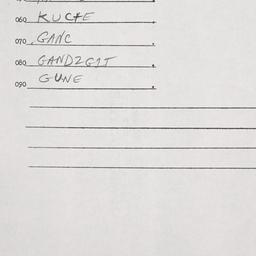 060 KUCFE
070 GANC
080 GANDZGIT
090 GUNE